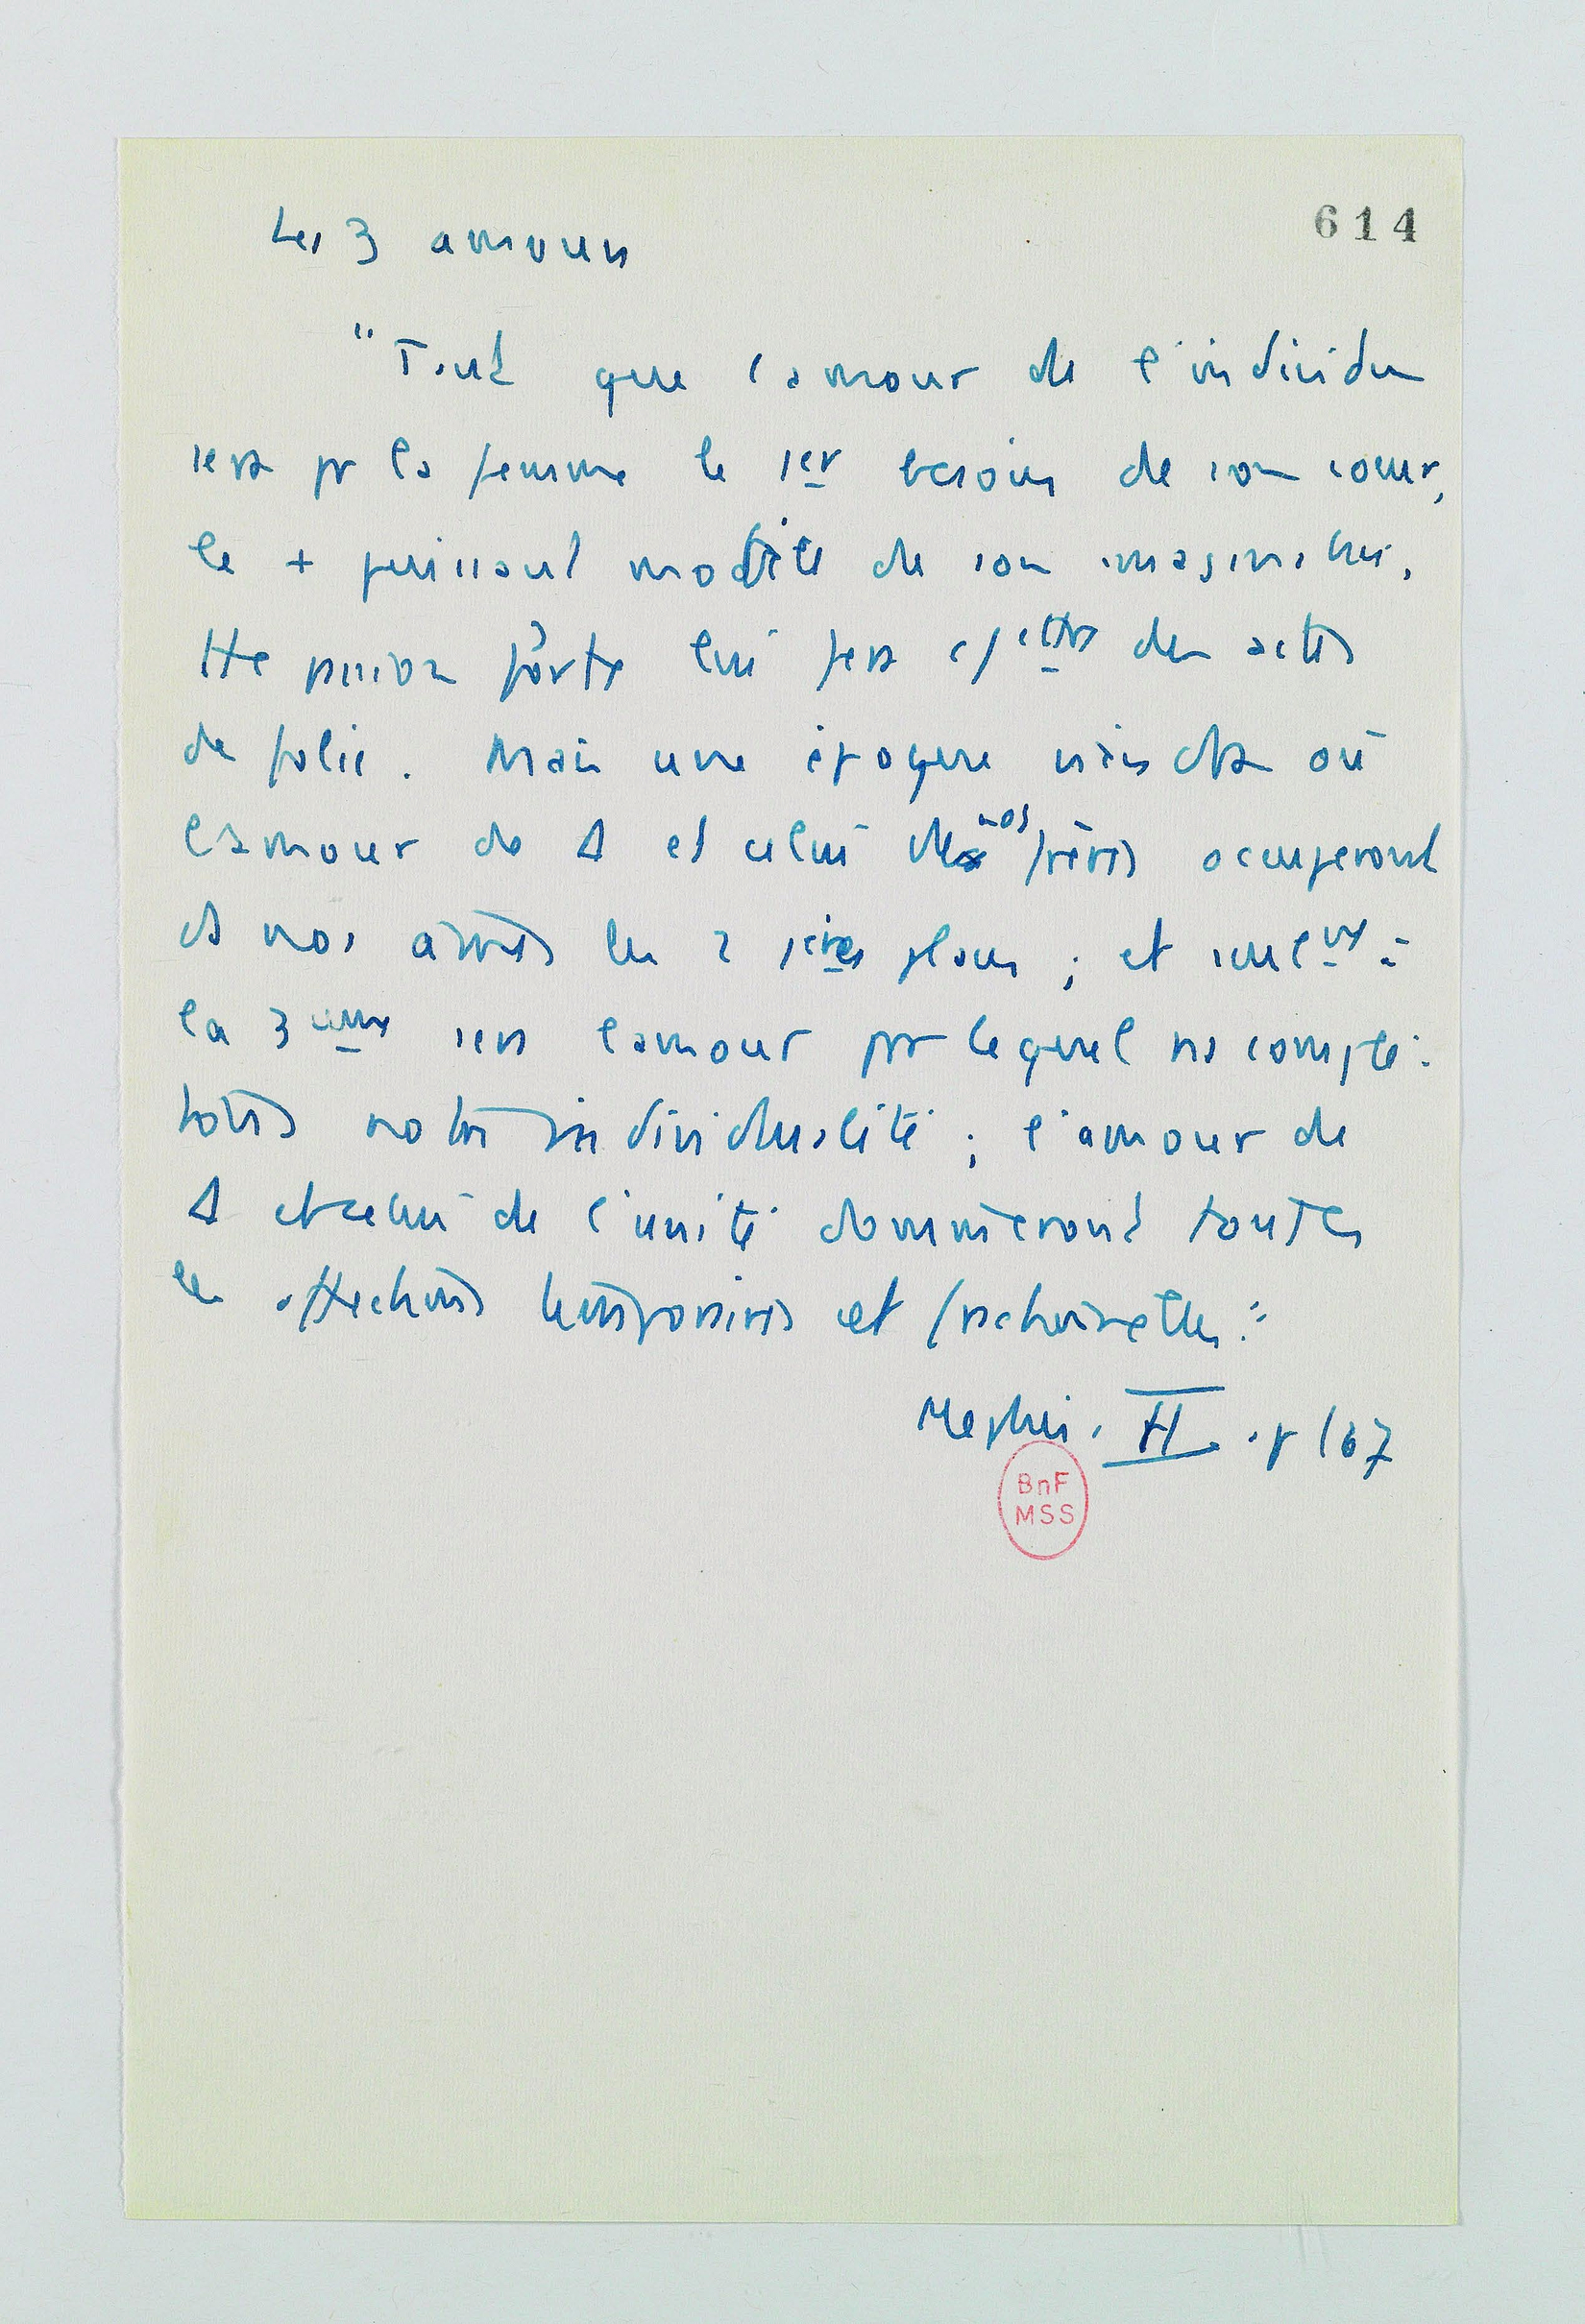 614
Les 3 amours
"Tant que l'amour de l'individu
sera pr la femme le 1er besoin de son coeur,
le + puissant mobile de son imagination,
tte passion forte lui fera des actes
de folie. Mais une époque viendra où
l'amour de Δ et celui de nos frères occuperont
ds nos âmes les 2 1ers plans ; et seulemt à
la 3ème sera l'amour par lequel ns complè-
tons notre individualité ; l'amour de
Δ et celui de l'unité domineront toutes
les affections temporaires et fractionnelles."
Mephis. II. p 167
BnF
MSS